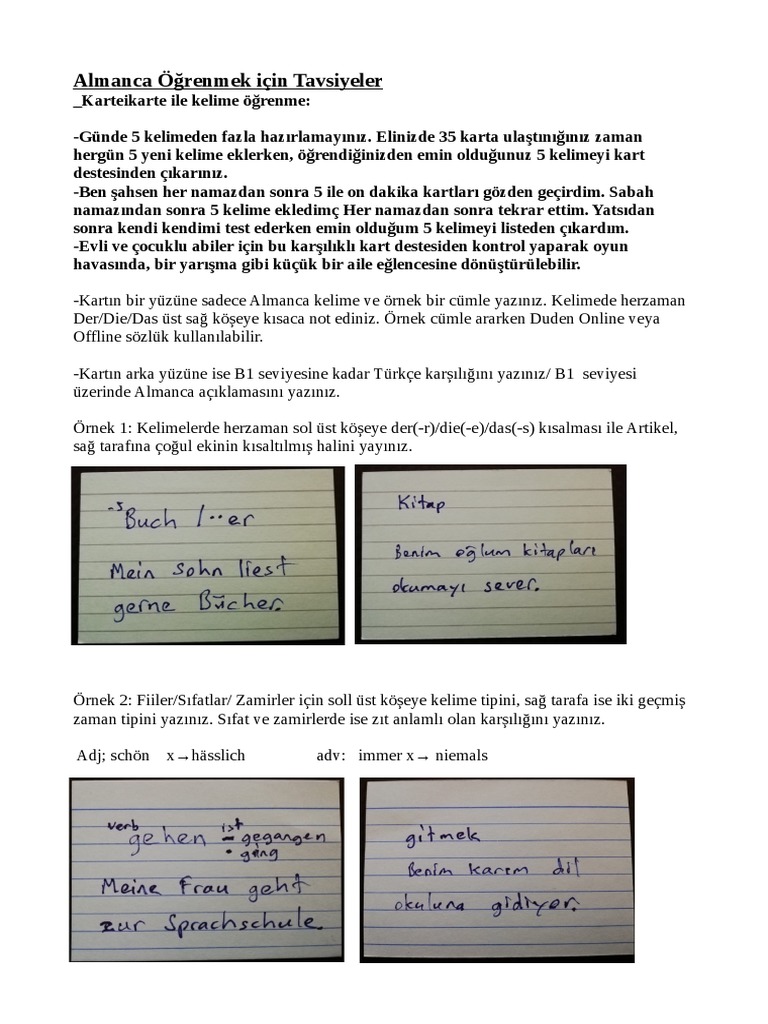 Almanca Öğrenmek için Tavsiyeler
_Karteikarte ile kelime öğrenme:
-Günde 5 kelimeden fazla hazırlamayınız. Elinizde 35 karta ulaştınığınız zaman
hergün 5 yeni kelime eklerken, öğrendiğinizden emin olduğunuz 5 kelimeyi kart
destesinden çıkarınız.
-Ben şahsen her namazdan sonra 5 ile on dakika kartları gözden geçirdim. Sabah
namazından sonra 5 kelime ekledimç Her namazdan sonra tekrar ettim. Yatsıdan
sonra kendi kendimi test ederken emin olduğum 5 kelimeyi listeden çıkardım.
-Evli ve çocuklu abiler için bu karşılıklı kart destesiden kontrol yaparak oyun
havasında, bir yarışma gibi küçük bir aile eğlencesine dönüştürülebilir.
-Kartın bir yüzüne sadece Almanca kelime ve örnek bir cümle yazınız. Kelimede herzaman
Der/Die/Das üst sağ köşeye kısaca not ediniz. Örnek cümle ararken Duden Online veya
Offline sözlük kullanılabilir.
-Kartın arka yüzüne ise B1 seviyesine kadar Türkçe karşılığını yazınız/ B1  seviyesi
üzerinde Almanca açıklamasını yazınız.
Örnek 1: Kelimelerde herzaman sol üst köşeye der(-r)/die(-e)/das(-s) kısalması ile Artikel,
sağ tarafına çoğul ekinin kısaltılmış halini yayınız.
-s Buch /¨er
Mein Sohn liest
gerne Bücher.
Kitap
Benim oğlum kitapları
okumayı sever.
Örnek 2: Fiiler/Sıfatlar/ Zamirler için soll üst köşeye kelime tipini, sağ tarafa ise iki geçmiş
zaman tipini yazınız. Sıfat ve zamirlerde ise zıt anlamlı olan karşılığını yazınız.
Adj; schön    x→hässlich    adv:   immer x→ niemals
verb gehen ist - gegangen
• ging
Meine Frau geht
zur Sprachschule.
gitmek
Benim karım dil
okuluna gidiyor.